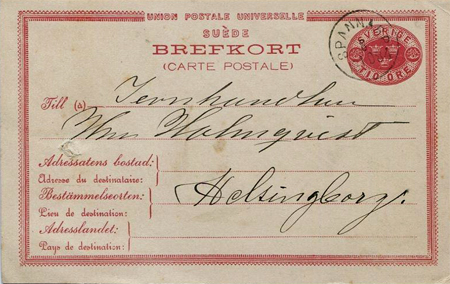 UNION POSTALE UNIVERSELLE
SUÈDE
BREFKORT
(CARTE POSTALE)
SVERIGE
TIO ORE
Till (à)
Jernhandlaren
Wm Holmqvist
Adressatens bostad:
Adresse du destinataire:
Bestämmelseorten:
Helsingborg.
Lieu de destination:
Adresslandet:
Pays de destination: